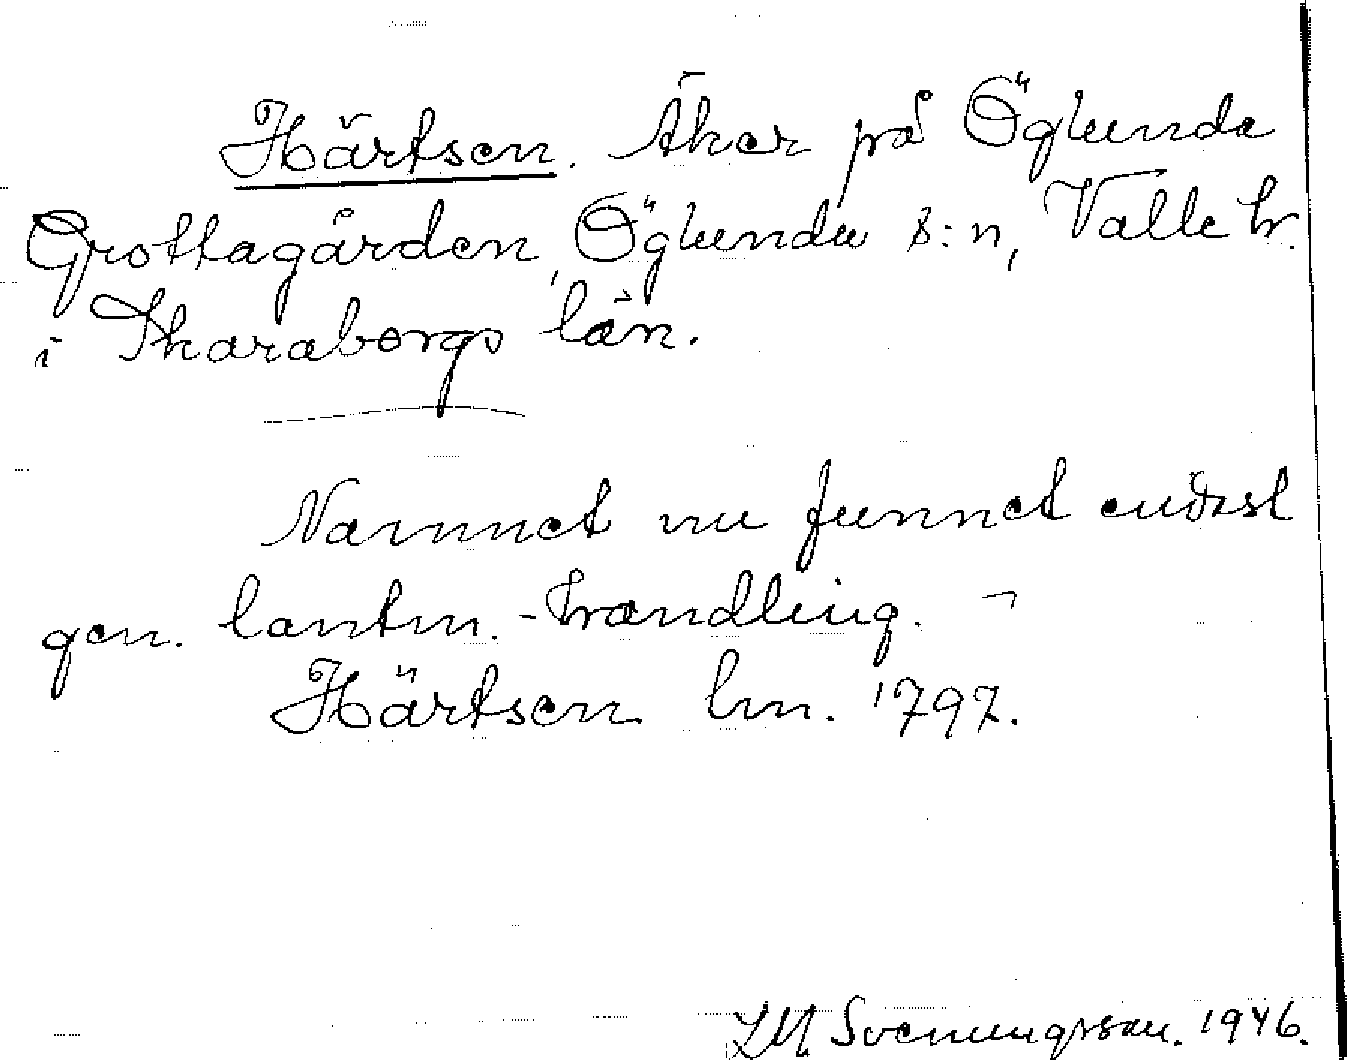 Härtsen. Åker på Öglunda
Grottagården, Öglunda s:n, Valle hr.
i Skaraborgs län.
Namnet nu funnet endast
gen. lantm.-handling.
Härtsen lm. 1797.
Svenungsson. 1946.